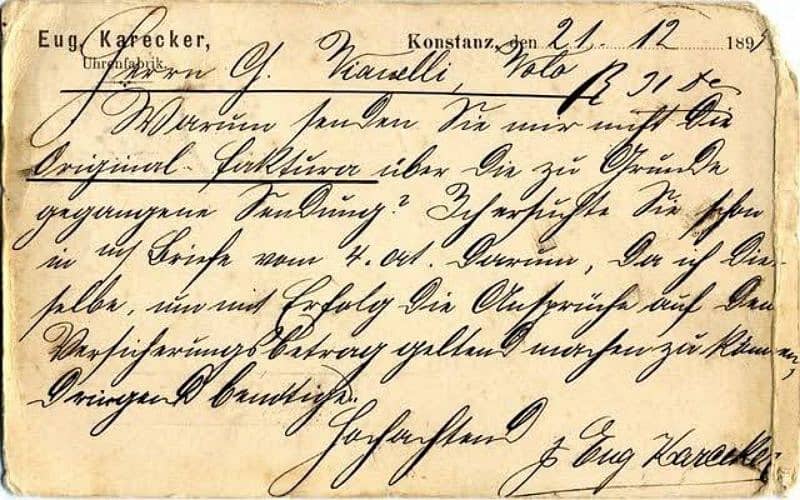 Eug. Karecker,
Uhrenfabrik.
Konstanz, den 21. 12 189
Herrn G. Vianelli, Volo
31 Dc
Warum senden Sie mir nicht die
Original-Faktura über die zu Grunde
gegangene Sendung? Ich ersuchte Sie schon
in Briefe vom 4. ct. darum, da ich die-
selbe, um mit Erfolg die Ansprüche auf den
Versicherungsbetrag geltend machen zu können,
dringend benötige.
Hochachtend
Eug Karecker